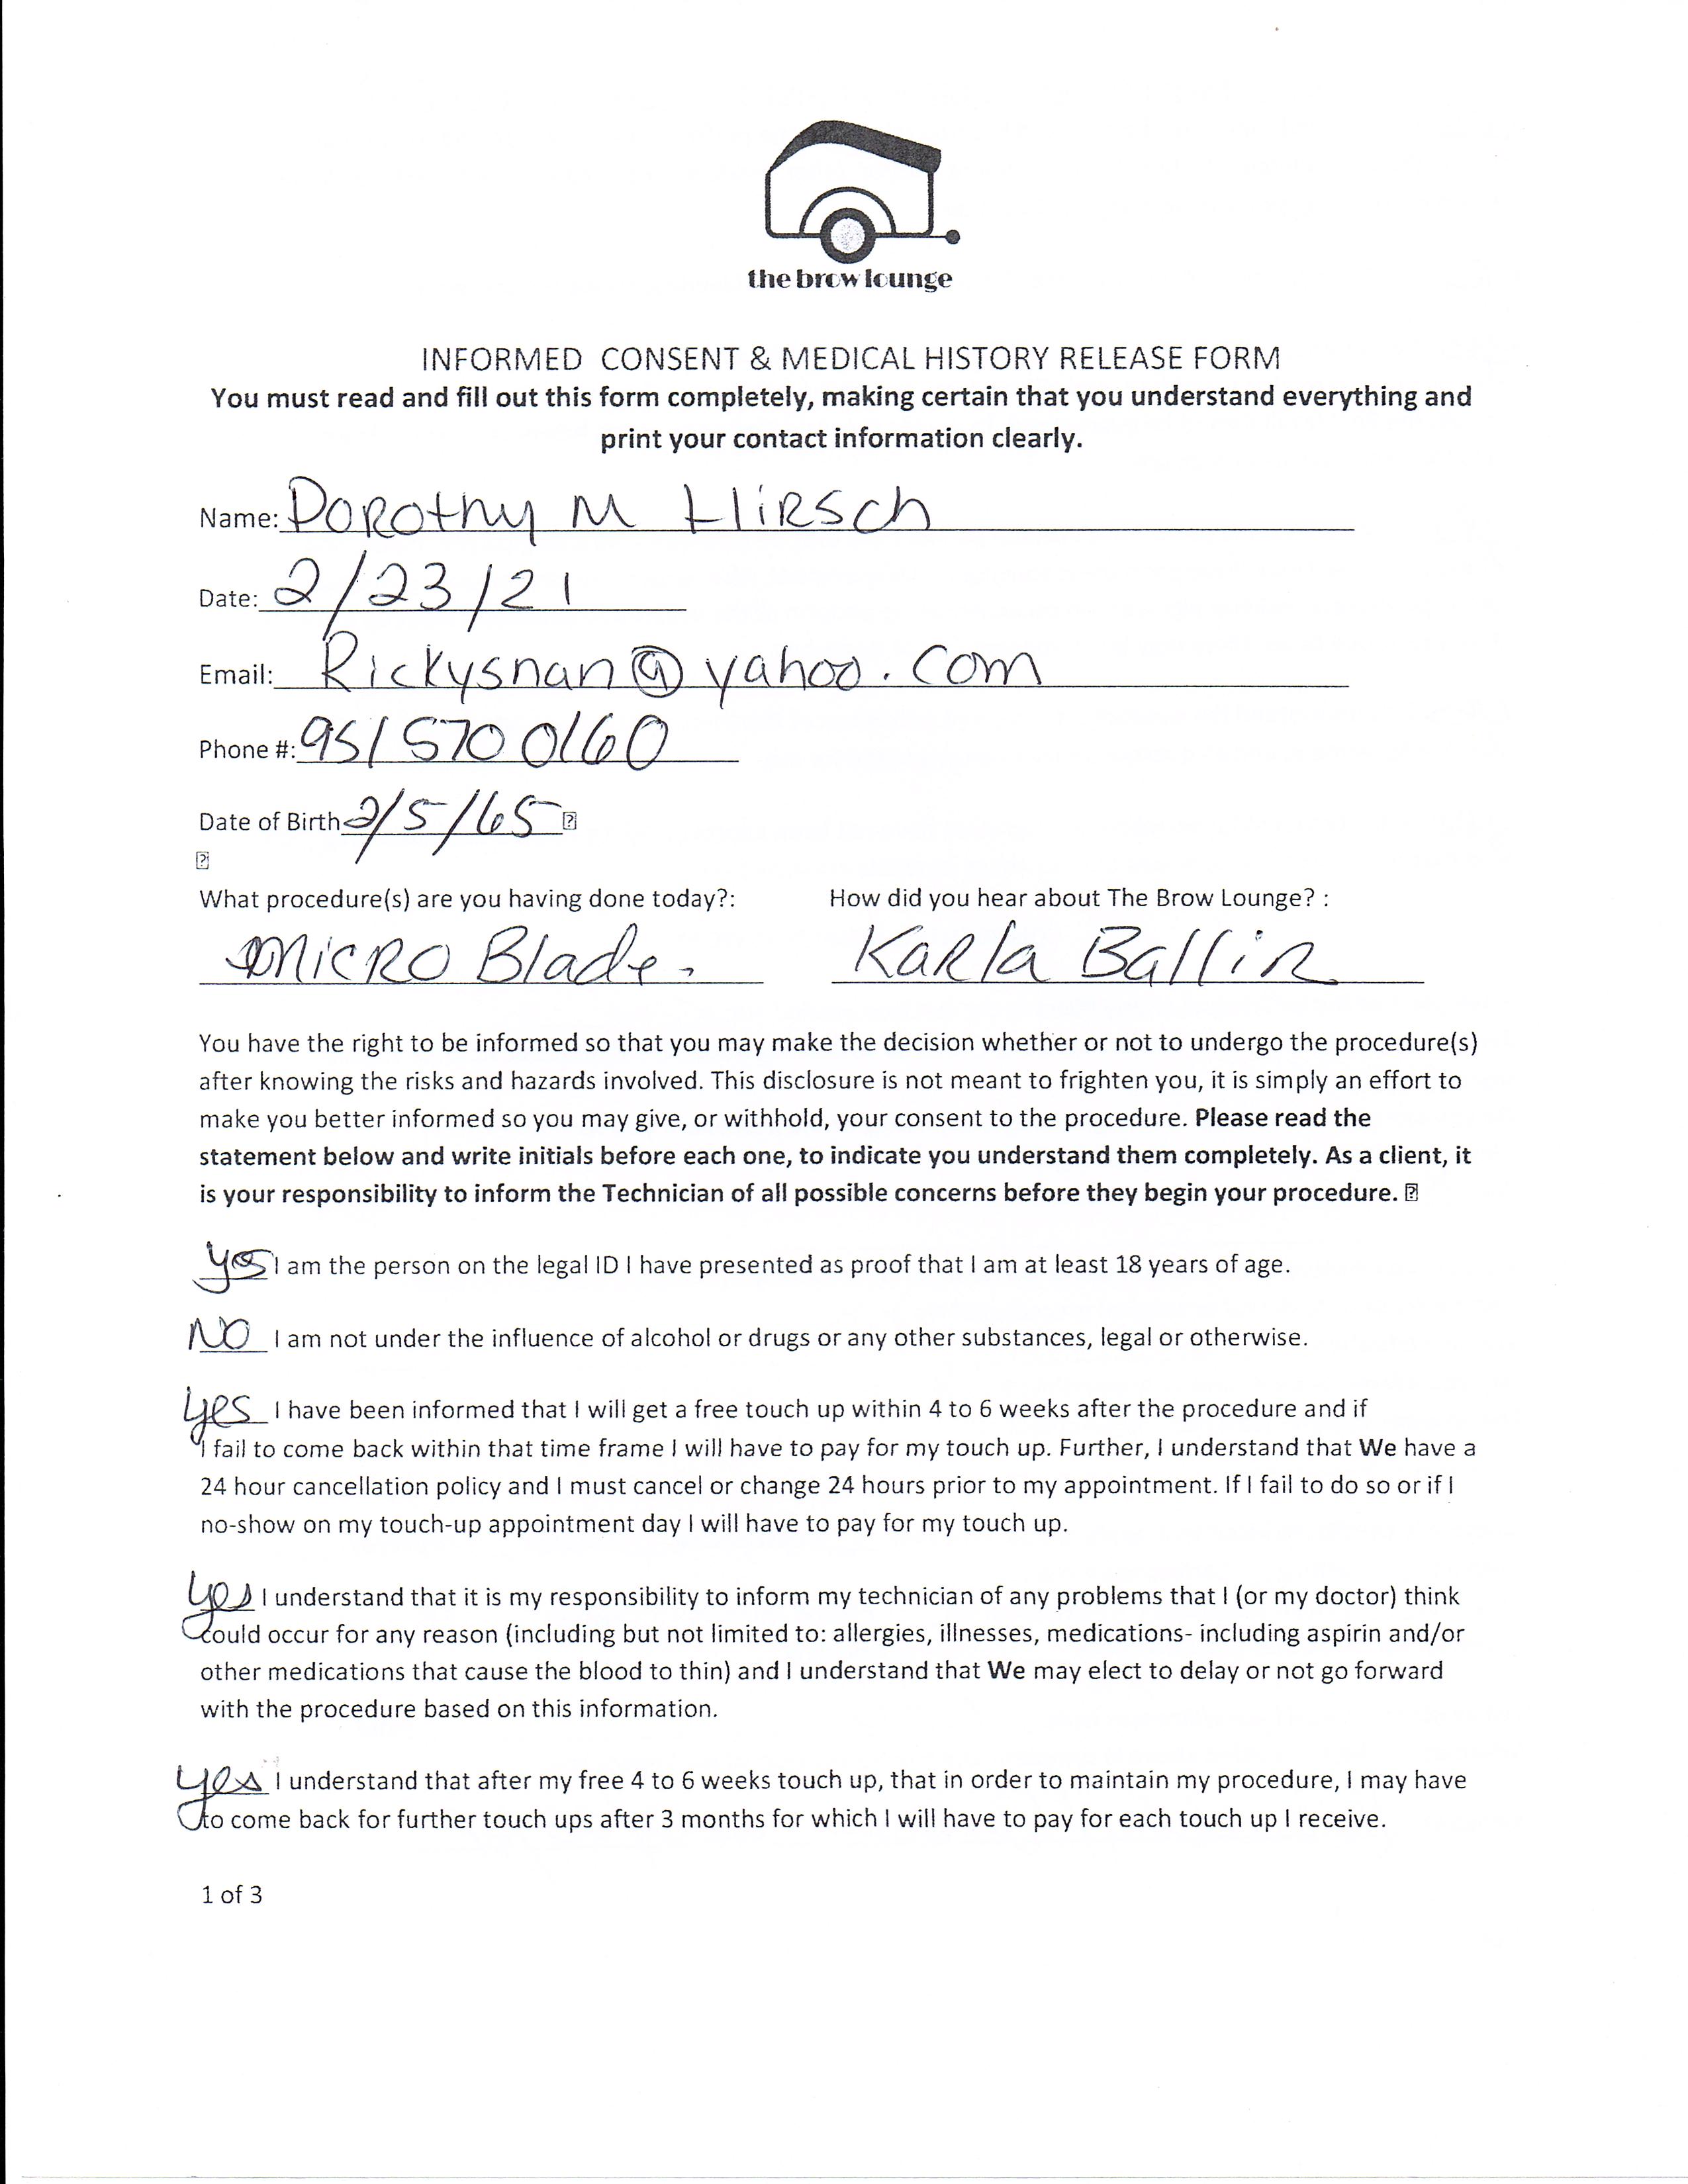 the brow lounge
INFORMED CONSENT & MEDICAL HISTORY RELEASE FORM
You must read and fill out this form completely, making certain that you understand everything and
print your contact information clearly.
Name: Dorothy M Hirsch
Date: 2/23/21
Email: Rickysnan@yahoo.com
Phone #: 951 570 0160
Date of Birth 2/5/65
What procedure(s) are you having done today?: How did you hear about The Brow Lounge? :
Micro Blade. Karla Ballin
You have the right to be informed so that you may make the decision whether or not to undergo the procedure(s)
after knowing the risks and hazards involved. This disclosure is not meant to frighten you, it is simply an effort to
make you better informed so you may give, or withhold, your consent to the procedure. Please read the
statement below and write initials before each one, to indicate you understand them completely. As a client, it
is your responsibility to inform the Technician of all possible concerns before they begin your procedure.
yes I am the person on the legal ID I have presented as proof that I am at least 18 years of age.
NO I am not under the influence of alcohol or drugs or any other substances, legal or otherwise.
yes I have been informed that I will get a free touch up within 4 to 6 weeks after the procedure and if
I fail to come back within that time frame I will have to pay for my touch up. Further, I understand that We have a
24 hour cancellation policy and I must cancel or change 24 hours prior to my appointment. If I fail to do so or if I
no-show on my touch-up appointment day I will have to pay for my touch up.
yes I understand that it is my responsibility to inform my technician of any problems that I (or my doctor) think
could occur for any reason (including but not limited to: allergies, illnesses, medications- including aspirin and/or
other medications that cause the blood to thin) and I understand that We may elect to delay or not go forward
with the procedure based on this information.
yes I understand that after my free 4 to 6 weeks touch up, that in order to maintain my procedure, I may have
to come back for further touch ups after 3 months for which I will have to pay for each touch up I receive.
1 of 3